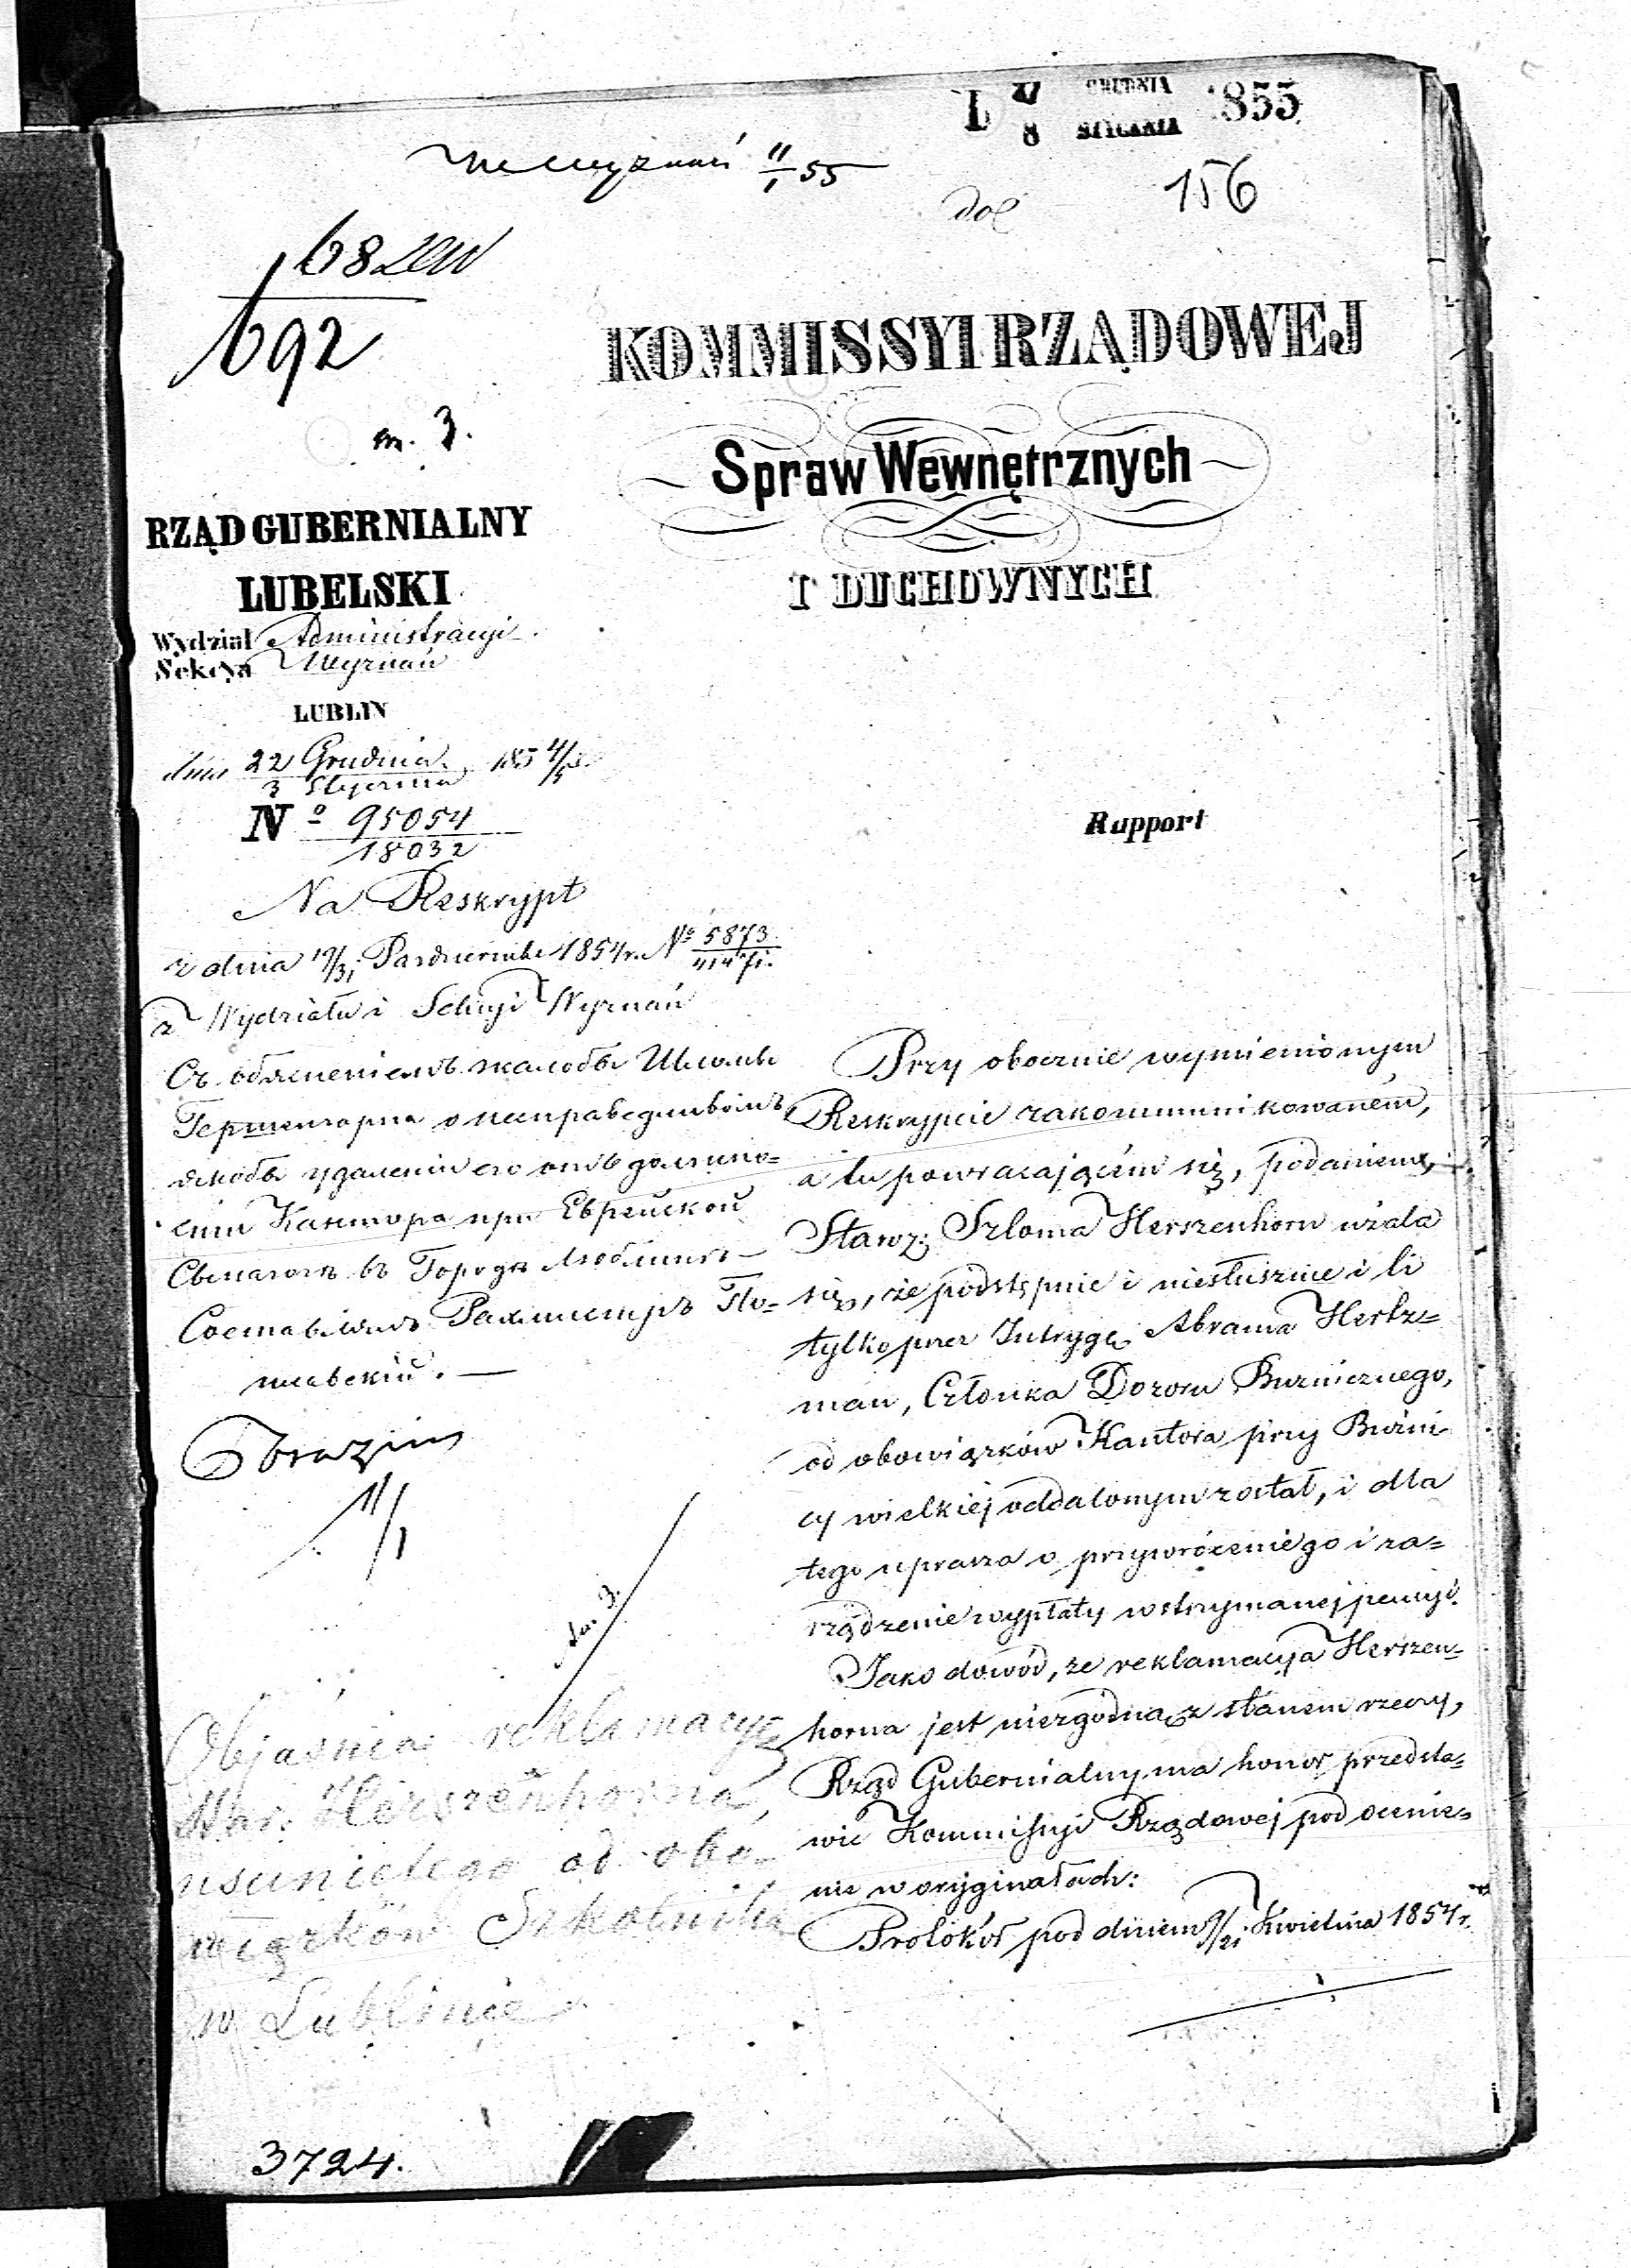 GRUDNIA
8 STYCZNIA 1855
Wyznań 11/1 55
156
68
692
m. 3.
KOMMISSYI RZĄDOWEJ
Spraw Wewnętrznych
I DUCHOWNYCH
RZĄD GUBERNIALNY
LUBELSKI
Wydział Administracyi
Sekcya Wyznań
LUBLIN
dnia 22 Grudnia / 3 Stycznia 1854/5
Nº 95054
18032
Rapport
Na Reskrypt
z dnia 19/31 Pazdziernika 1854 r. Nº 5873
z Wydziału i Sekcyi Wyznań
Съ объясненіемъ жалобы Шлема
Гершенгорна о несправедливомъ
якобы удаленіи его отъ должно=
сти Кантора при Еврейской
Сынагогѣ въ Городѣ Люблинѣ
Составилъ
11/1
Objaśnia reklamacyę
Star. Herszenhorna,
usuniętego od obo=
wiązków Szkolnika
w Lublinie
3724.
Przy obocznie wymienionym
Reskrypcie zakommunikowaném,
a tu powracającém się, podaniem,
Starz: Szloma Herszenhorn użala
się, że podstępnie i niesłusznie i li
tylko przez Intrygę Abrama Hertz=
man, Członka Dozoru Buzniczego,
od obowiązków Kantora przy Buźni=
cy wielkiej oddalonym został, i dla
tego uprasza o przywrócenie go i za=
rządzenie wypłaty wstrzymanej pensyi.
Jako dowód, że reklamacya Herszen=
horna jest niezgodną z stanem rzeczy,
Rząd Gubernialny ma honor przedsta=
wić Kommissyi Rządowej pod ocenie=
nie w oryginałach:
Protokół pod dniem 9/21 Kwietnia 1854 r.